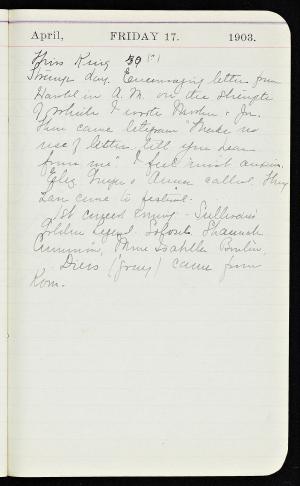 April, FRIDAY 17. 1903.
Miss King
Strange day. Encouraging letter from
Harold in A.M. on the strength
of which I wrote
Then came telegram "Make no
use of letter till you hear
from me". I feel most anxious.
called. They
can come to festival.
1st concert evening - Sullivan's
Golden Legend. Soloists. Shannah
Cumming, Mme Isabelle Bouton,
Dress (gray) came from
Kom.